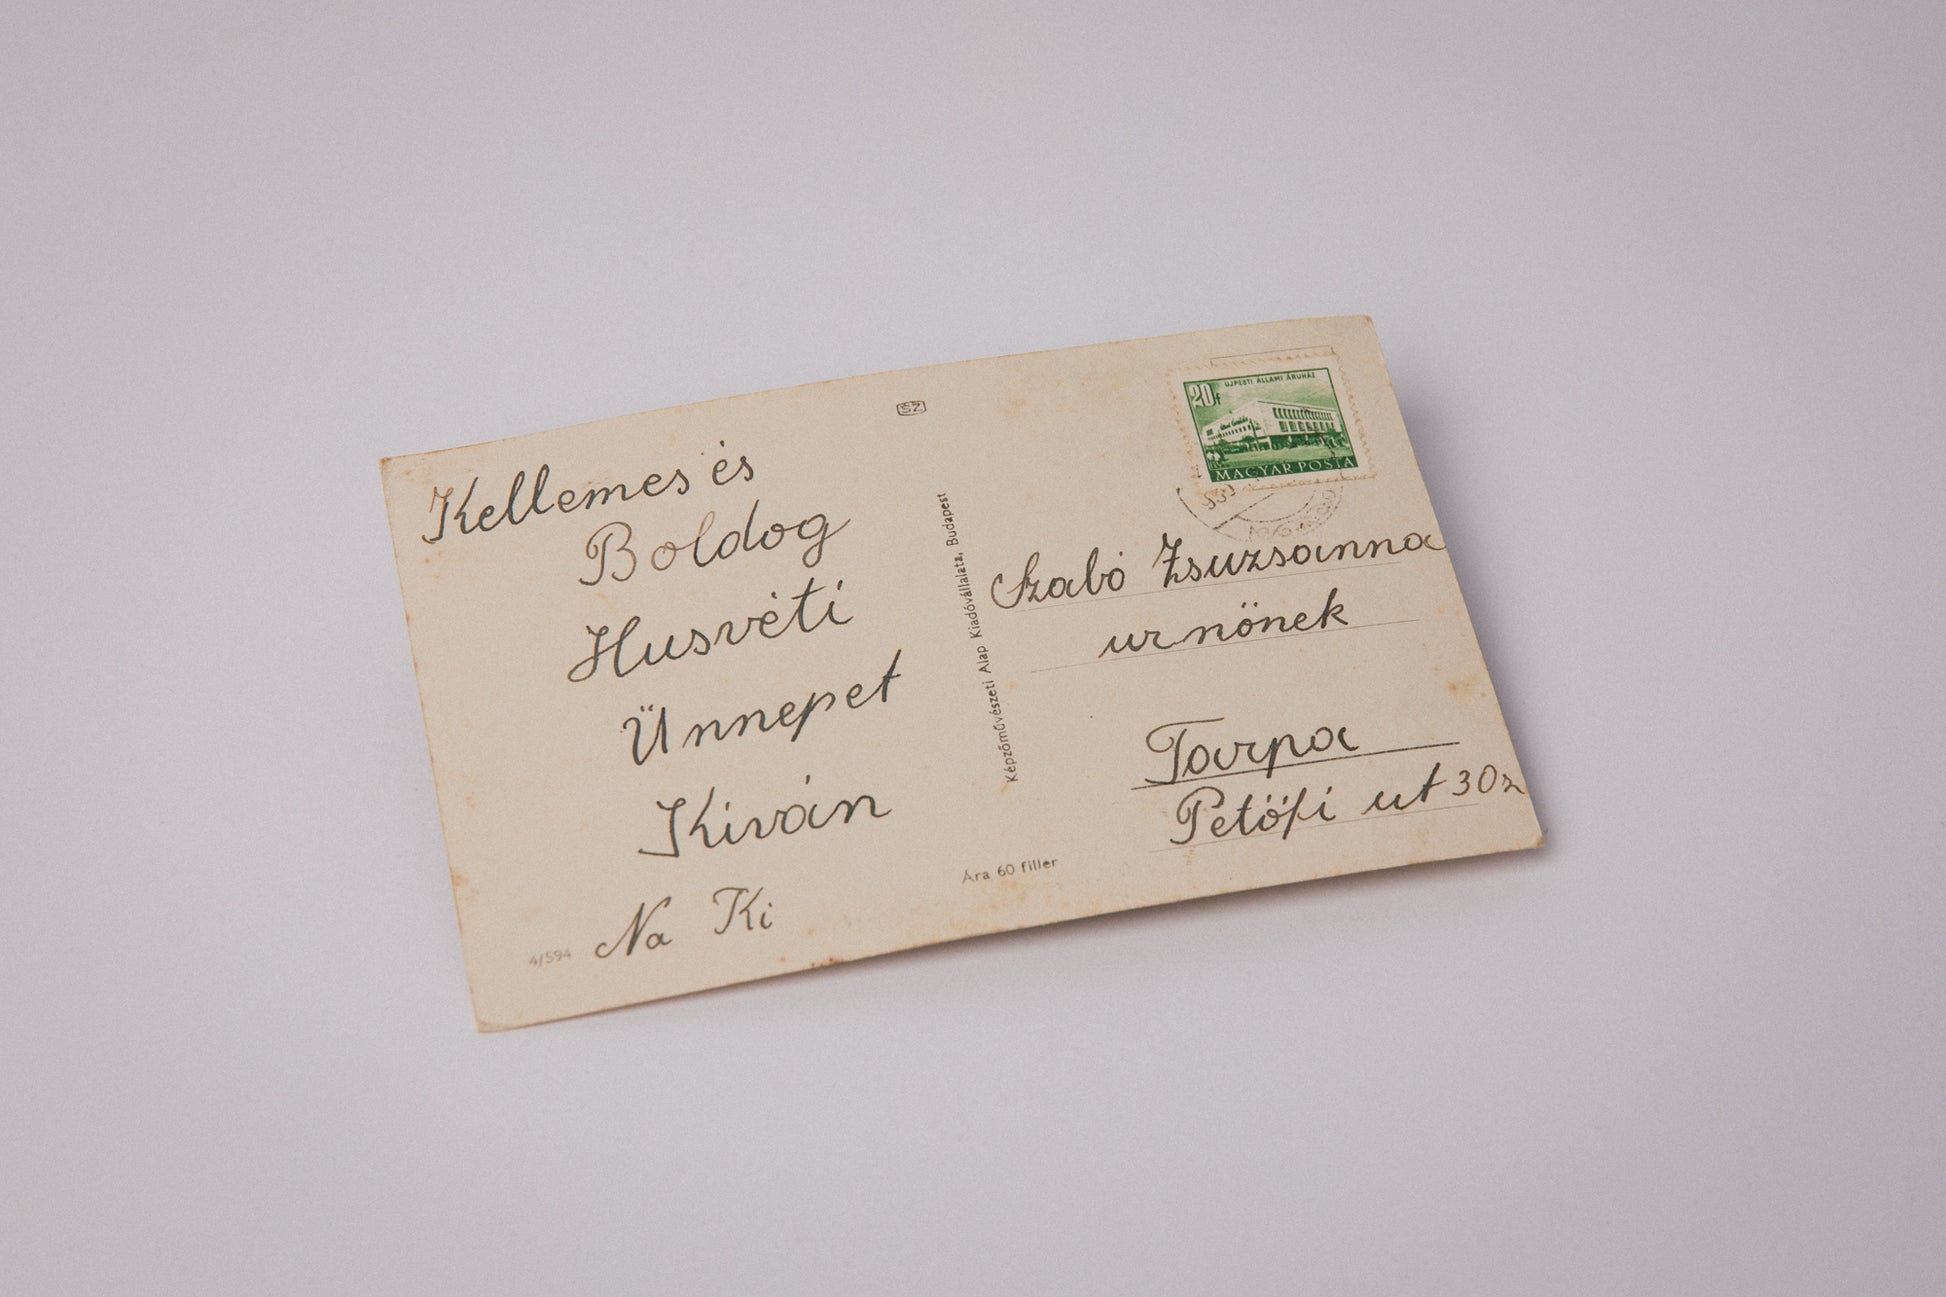 Kellemes és
Boldog
Husvéti
Ünnepet
Kiván
Na Ki
4/594
SZ
Képzőművészeti Alap Kiadóvállalata, Budapest
Ára 60 fillér
20f
UJPESTI ÁLLAMI ÁRUHÁZ
MAGYAR POSTA
Szabó Zsuzsanna
urnőnek
Tarpa
Petőfi ut 30